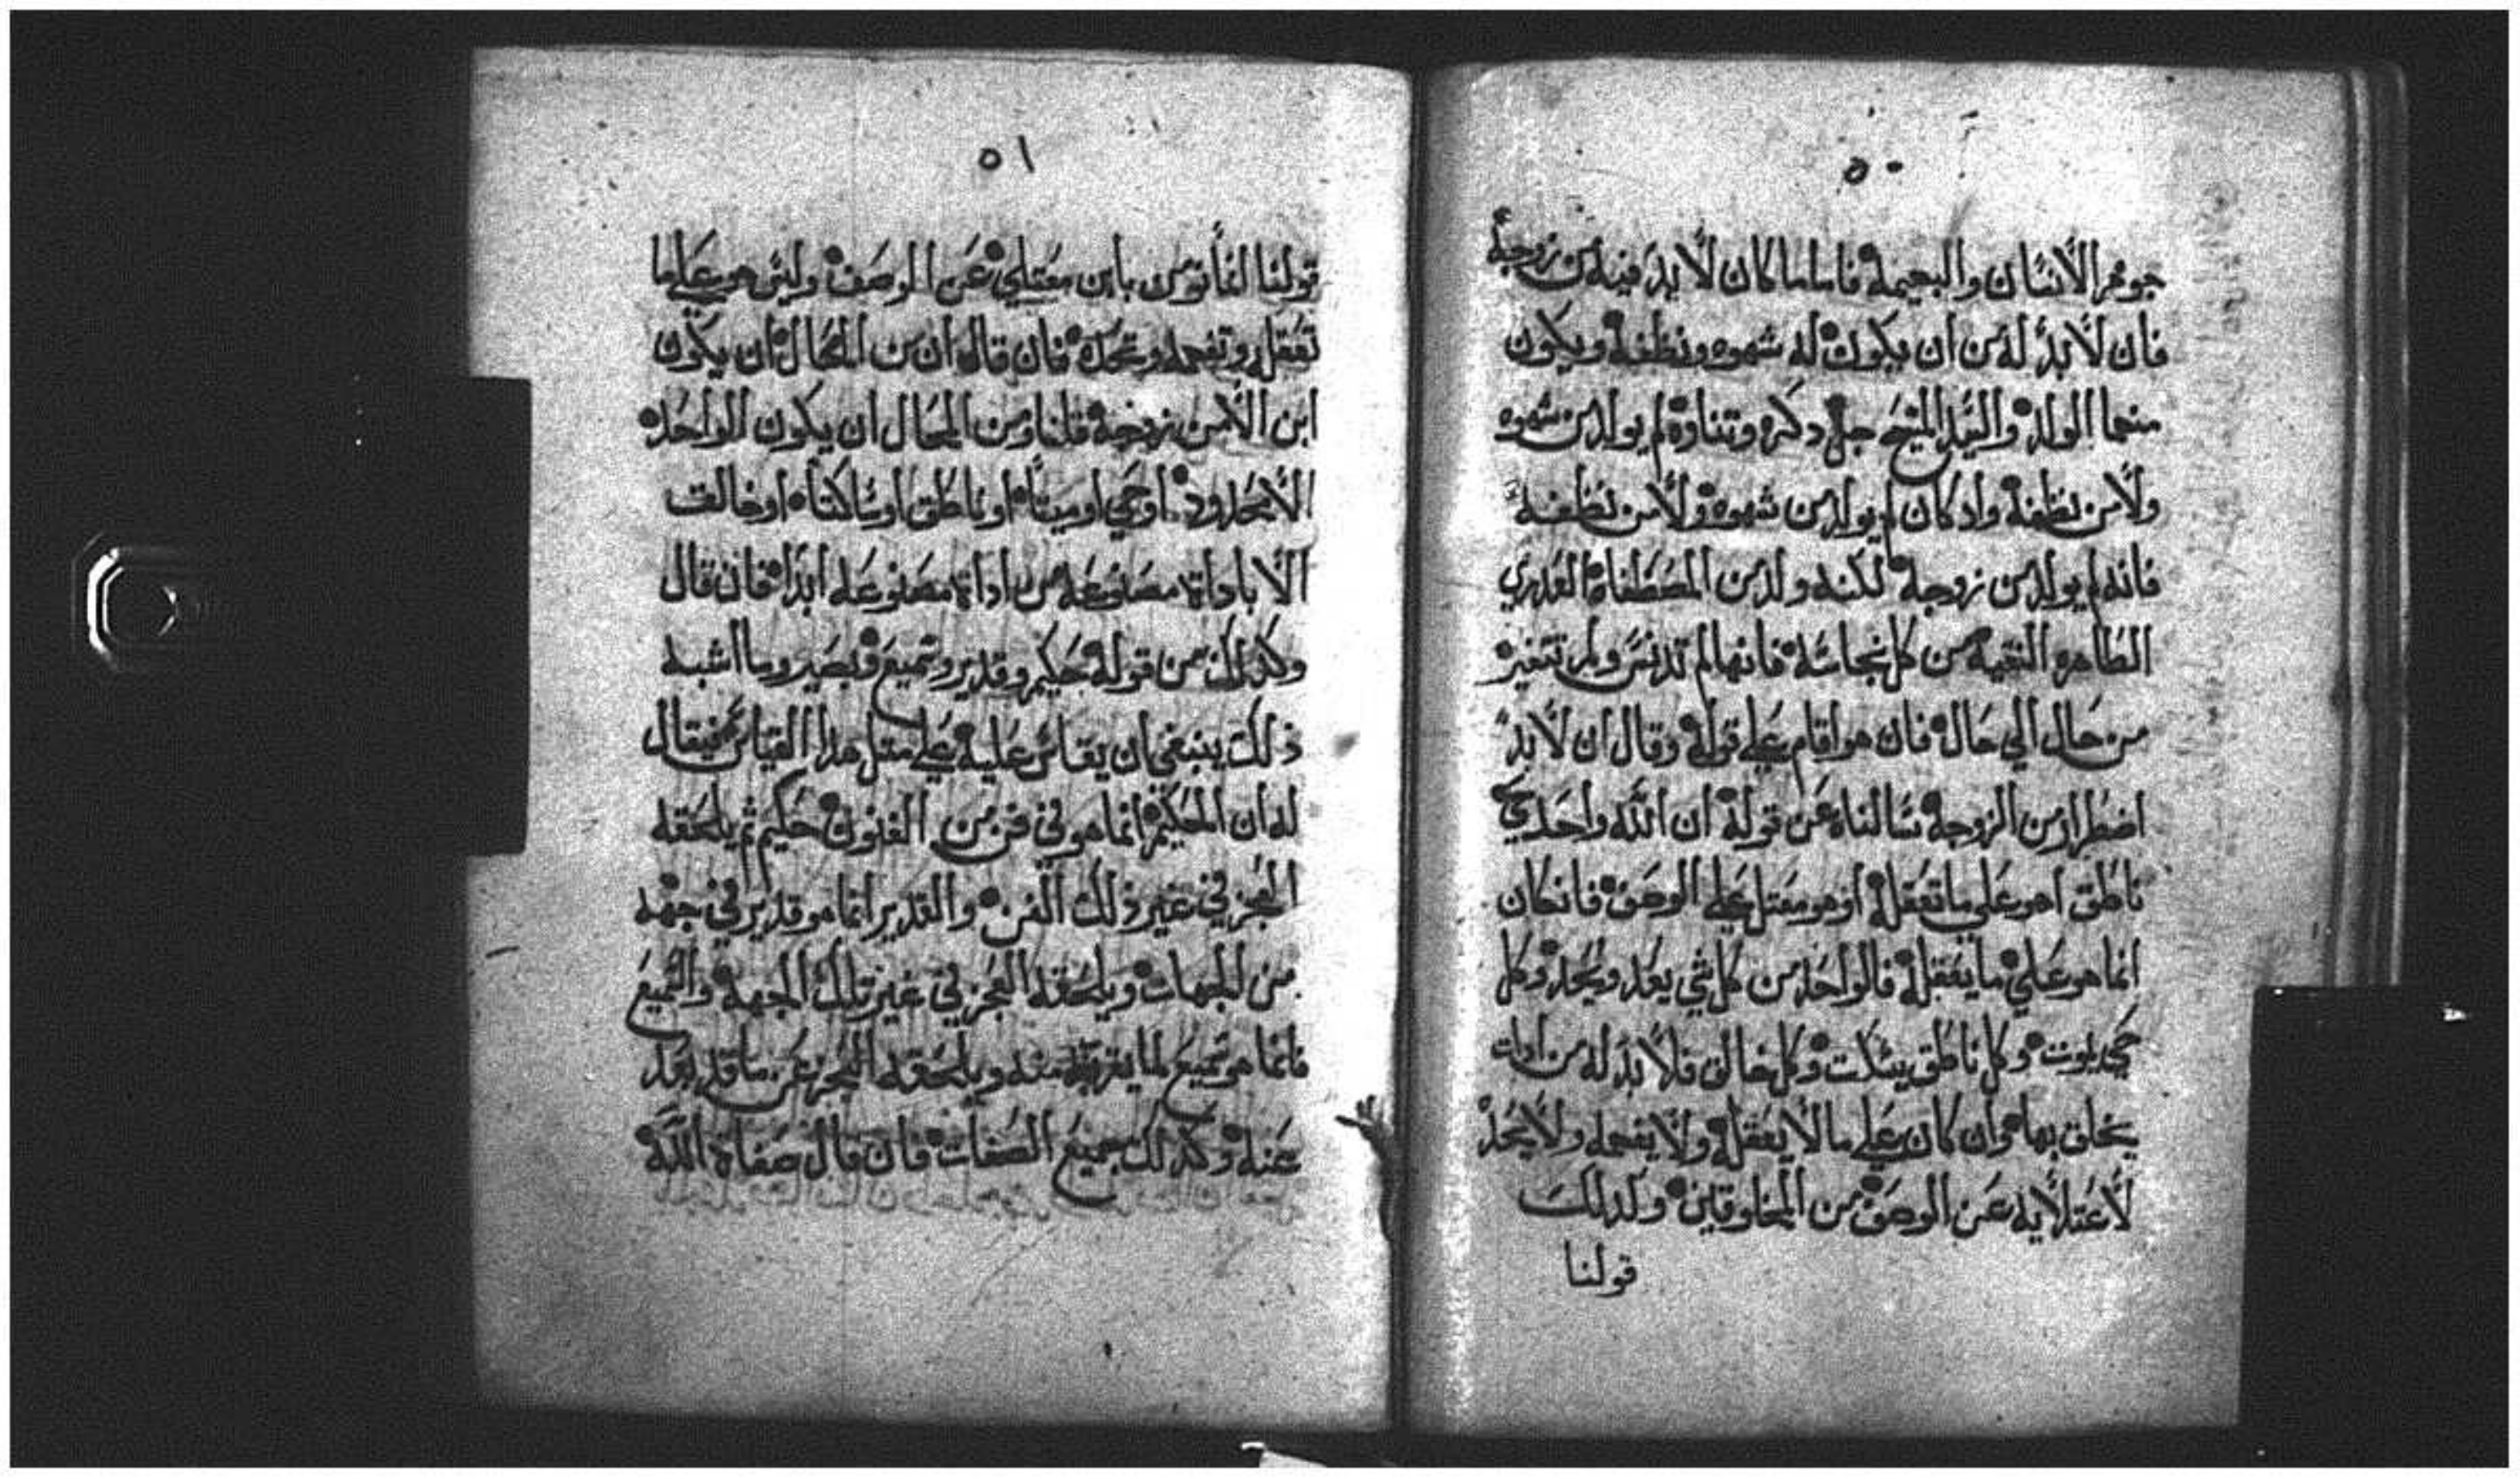 ٥٠
جوهر الانسان والبهيمة فاما ما كان لا بد فيه من زوجة
فان لا بد له من ان يكون له شهوه ونطفه ويكون
منهما الولد والسيد المسيح جل دكره وتناوه لم يولد من شهوه
ولا من نطفة واد كان لم يولد من شهوة ولا من نطفة
فانه لم يولد من زوجة لكنه ولد من المصطفاه العدري
الطاهره النقيه من كل نجاسة فانها لم تدنس ولم تتغير
من حال الي حال فان هو اقام علي قوله وقال ان لا بد
اضطرار من الزوجة سالناه عن قوله ان الله واحد حي
ناطق اهو علي ما تعقله او هو معتل علي الوصف فان كان
انما هو علي ما يعقله فالواحد من كل شي يعد ويحد وكل
حي يموت وكل ناطق يسكت وكل خالق فلا بد له من ادات
يخلق بها وان كان علي ما لا يعقله ولا يفهمه ولا يحد
لاعتلايه عن الوصف من المخلوقين وكدلك
قولنا
٥١
قولنا الفانوس بابن معتلي عن الوصف وليس هو علي ما
تعقله وتفهمه وتحده فان قال ان من المحال ان يكون
ابن الا من زوجة قلنا ومن المحال ان يكون الواحد
الا محدود او حي او ميتا او ناطق او ساكتا او خالق
الا باداة مصنوعة من اداة مصنوعه ابدا فان قال
وكدلك من قوله حكيم وقدير وسميع وبصير وما اشبه
ذلك ينبغي ان يقاس عليه علي مثل هدا القياس فيقال
له ان الحكيم انما هو في فن من الفنون حكيم ثم يلحقه
العجز في غير ذلك الفن والقدير انما هو قدير في جهة
من الجهات ويلحقه العجز في غير تلك الجهة والسميع
فانما هو سميع لما يقرب منه ويلحقه العجز عن ما قد بعد
عنه وكدلك جميع الصفات فان قال صفاة الله